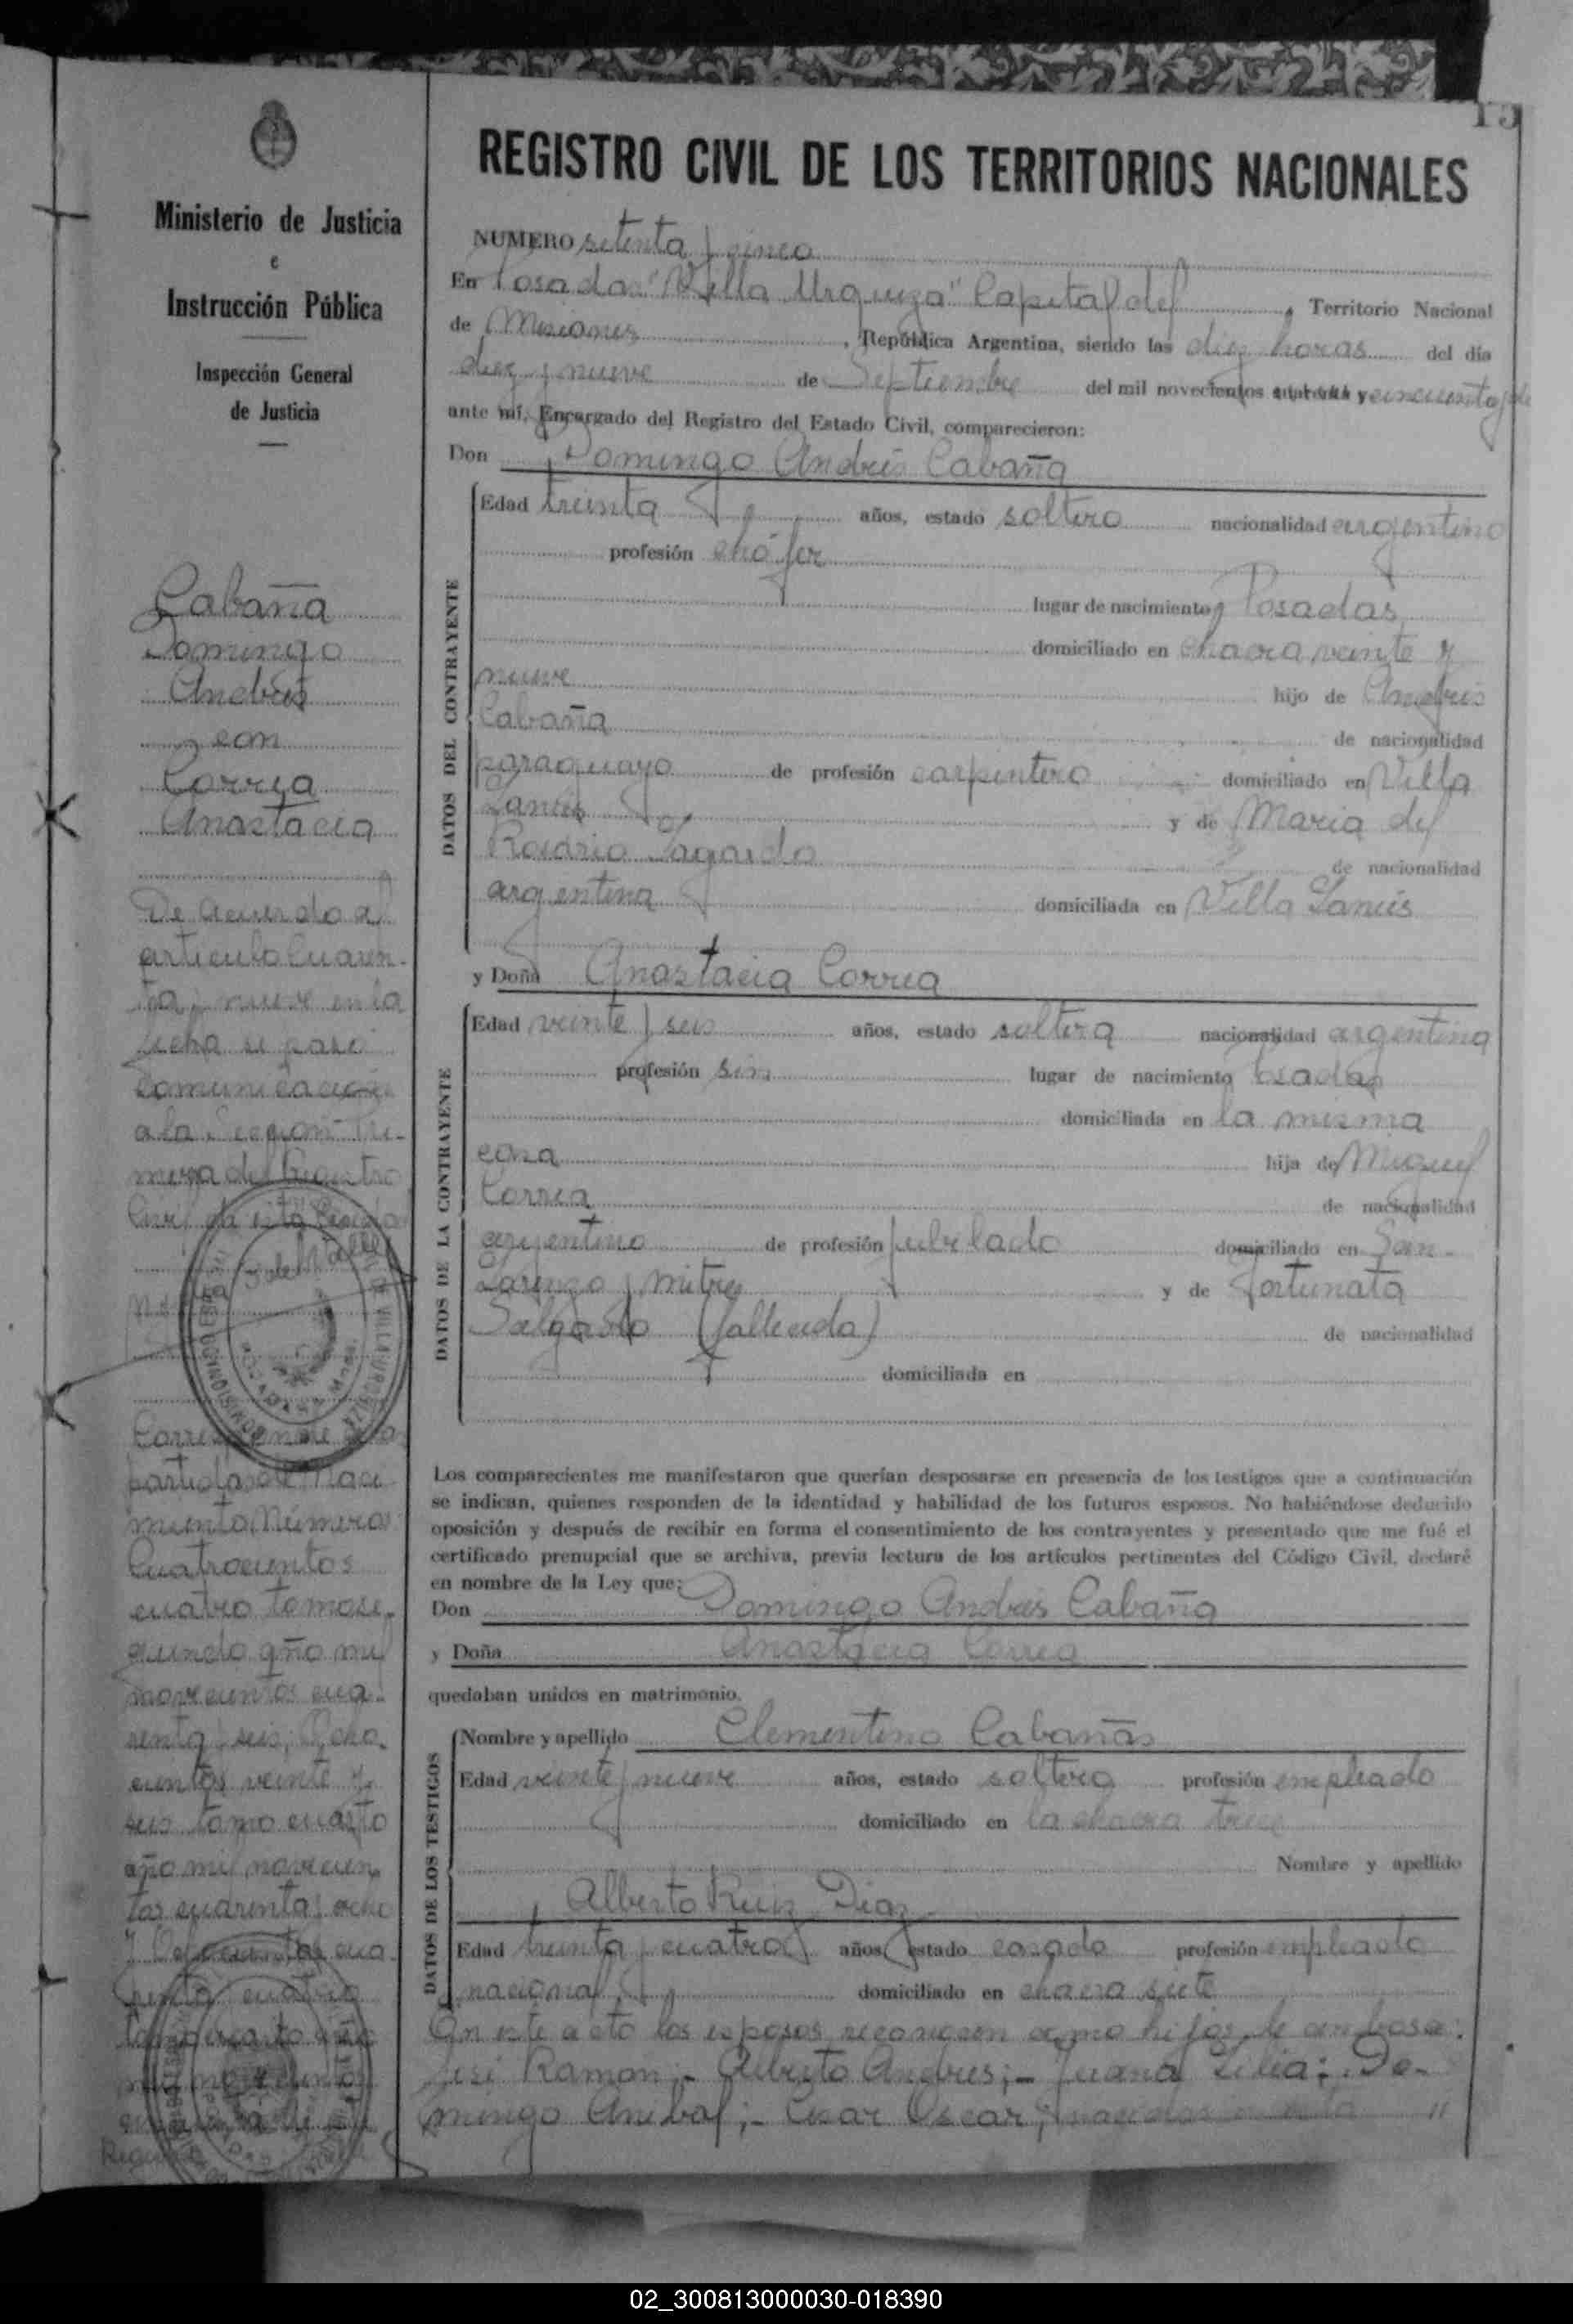 15
Ministerio de Justicia
e
Instrucción Pública
Inspección General
de Justicia
Cabaña
Domingo
Andrés
con
Correa
Anastacia
De acuerdo al
articulo Cuaren-
ta y nueve en la
fecha se pasó
comunicación
a la Sección Pri-
mera del Registro
Civil de esta
Corresponde a las
partidas de Naci
miento Número
Cuatrocientos
cuatro tomo se-
gundo año mil
novecientos cua-
renta y seis; Ocho-
cientos veinte y
seis tomo cuarto
año mil novecien
tos cuarenta y ocho
y cua
renta cuatro
tomo cuarto año
mil novecientos
REGISTRO CIVIL DE LOS TERRITORIOS NACIONALES
NUMERO setenta y cinco
En Posadas "Villa Urquiza" Capital del , Territorio Nacional
de Misiones , República Argentina, siendo las diez horas del día
diez y nueve de Septiembre del mil novecientos cuarenta y cincuenta
ante mí, Encargado del Registro del Estado Civil, comparecieron:
Don Domingo Andrés Cabaña
DATOS DEL CONTRAYENTE
Edad treinta años, estado soltero nacionalidad argentino
profesión chófer
lugar de nacimiento Posadas
domiciliado en chacra veinte y
nueve hijo de Andrés
Cabaña de nacionalidad
paraguayo de profesión carpintero domiciliado en Villa
Lanús y de Maria del
Rosario Fagardo de nacionalidad
argentina domiciliada en Villa Lanús
y Doña Anastacia Correa
DATOS DE LA CONTRAYENTE
Edad veinte y seis años, estado soltera nacionalidad argentina
profesión sin lugar de nacimiento Posadas
domiciliada en la misma
casa hija de Miguel
Correa de nacionalidad
argentino de profesión jubilado domiciliado en San-
Lorenzo y mitre y de Fortunata
Salgado (fallecida) de nacionalidad
domiciliada en
Los comparecientes me manifestaron que querían desposarse en presencia de los testigos que a continuación
se indican, quienes responden de la identidad y habilidad de los futuros esposos. No habiéndose deducido
oposición y después de recibir en forma el consentimiento de los contrayentes y presentado que me fué el
certificado prenupcial que se archiva, previa lectura de los artículos pertinentes del Código Civil, declaré
en nombre de la Ley que:
Don Domingo Andrés Cabaña
y Doña Anastacia Correa
quedaban unidos en matrimonio.
DATOS DE LOS TESTIGOS
Nombre y apellido Clementino Cabañas
Edad veinte y nueve años, estado soltero profesión empleado
domiciliado en la chacra trece
Nombre y apellido
Alberto Ruiz Diaz
Edad treinta y cuatro años, estado casado profesión empleado
nacional domiciliado en chacra siete
En este acto los esposos reconocen como hijos de ambos a:
José Ramon;- Alberto Andres;- Juana Lilia;- Do-
mingo Anibal;- Cesar Oscar; nacidos en esta "
02_300813000030-018390